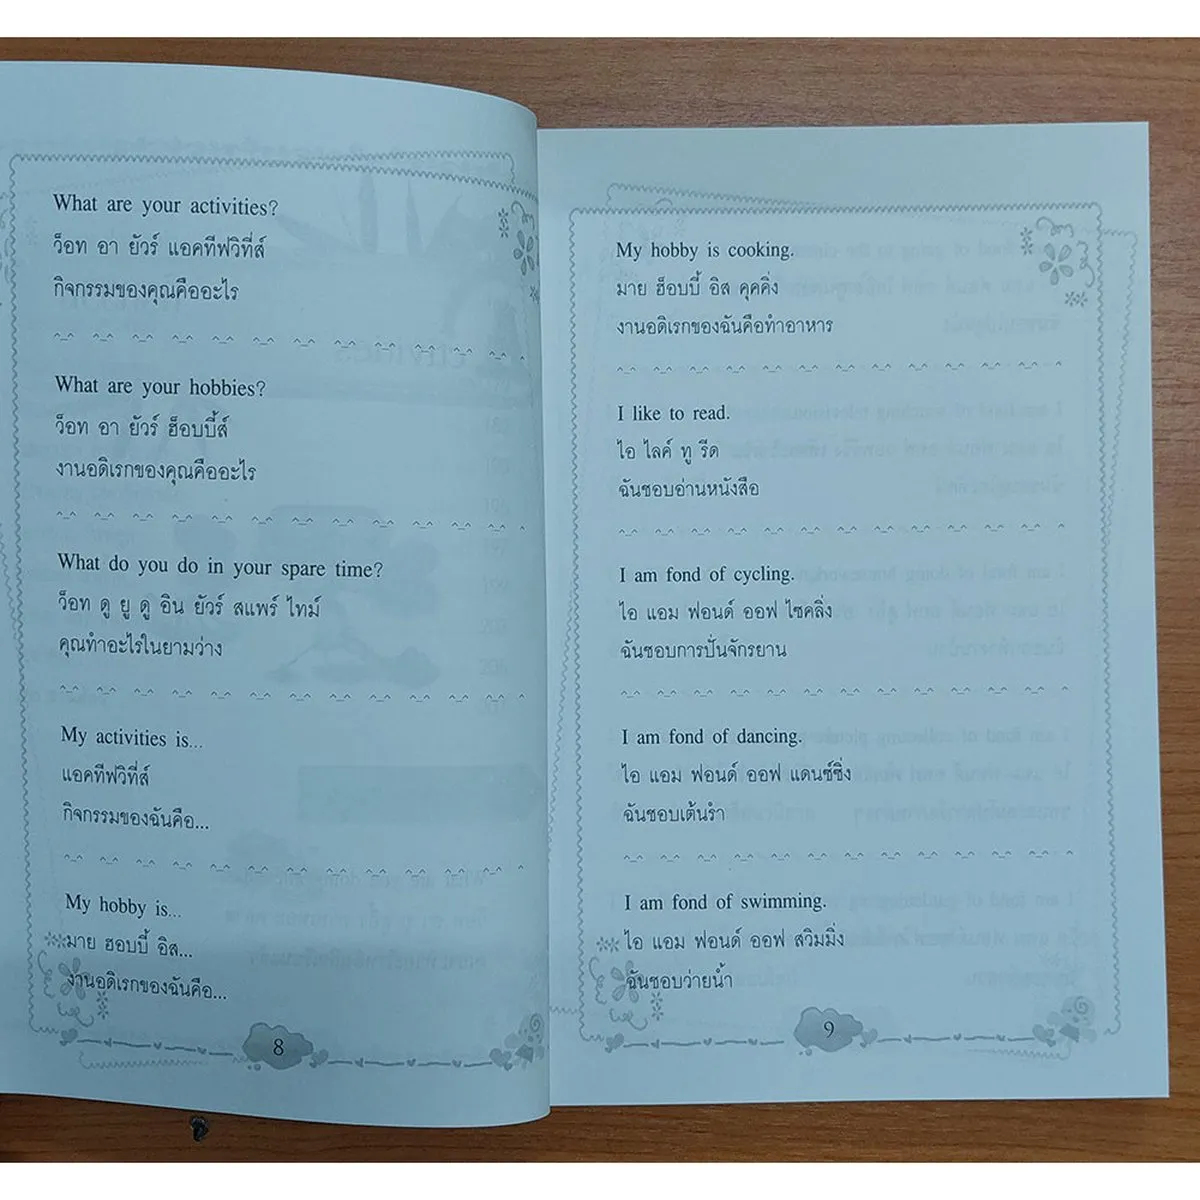 What are your activities?
ว็อท อา ยัวร์ แอคทีฟวิทีส์
กิจกรรมของคุณคืออะไร
What are your hobbies?
ว็อท อา ยัวร์ ฮ็อบบี้ส์
งานอดิเรกของคุณคืออะไร
What do you do in your spare time?
ว็อท ดู ยู ดู อิน ยัวร์ สแพร์ ไทม์
คุณทำอะไรในยามว่าง
My activities is...
แอคทีฟวิทีส์
กิจกรรมของฉันคือ...
My hobby is...
มาย ฮอบบี้ อิส...
งานอดิเรกของฉันคือ...
8
My hobby is cooking.
มาย ฮ็อบบี้ อิส คุคคิ่ง
งานอดิเรกของฉันคือทำอาหาร
I like to read.
ไอ ไลค์ ทู รีด
ฉันชอบอ่านหนังสือ
I am fond of cycling.
ไอ แอม ฟอนด์ ออฟ ไซคลิ่ง
ฉันชอบการปั่นจักรยาน
I am fond of dancing.
ไอ แอม ฟอนด์ ออฟ แดนซ์ซิ่ง
ฉันชอบเต้นรำ
I am fond of swimming.
ไอ แอม ฟอนด์ ออฟ สวิมมิ่ง
ฉันชอบว่ายน้ำ
9